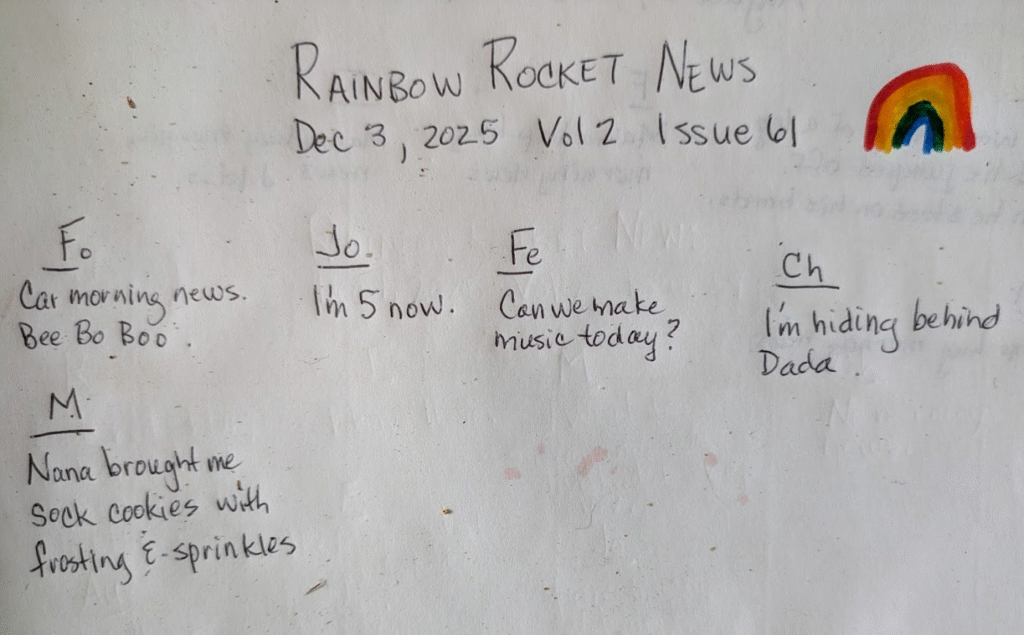 RAINBOW ROCKET NEWS
Dec 3, 2025 Vol 2 Issue 61
Fo
Car morning news.
Bee Bo Boo.
Jo.
I'm 5 now.
Fe
Can we make
music today?
Ch
I'm hiding behind
Dada.
M
Nana brought me
Sock cookies with
frosting & sprinkles